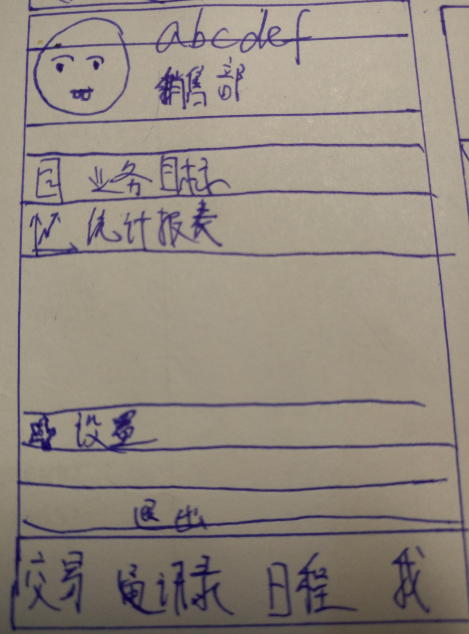 abcdef
销售部
业务目标
统计报表
设置
退出
交易 通讯录 日程 我